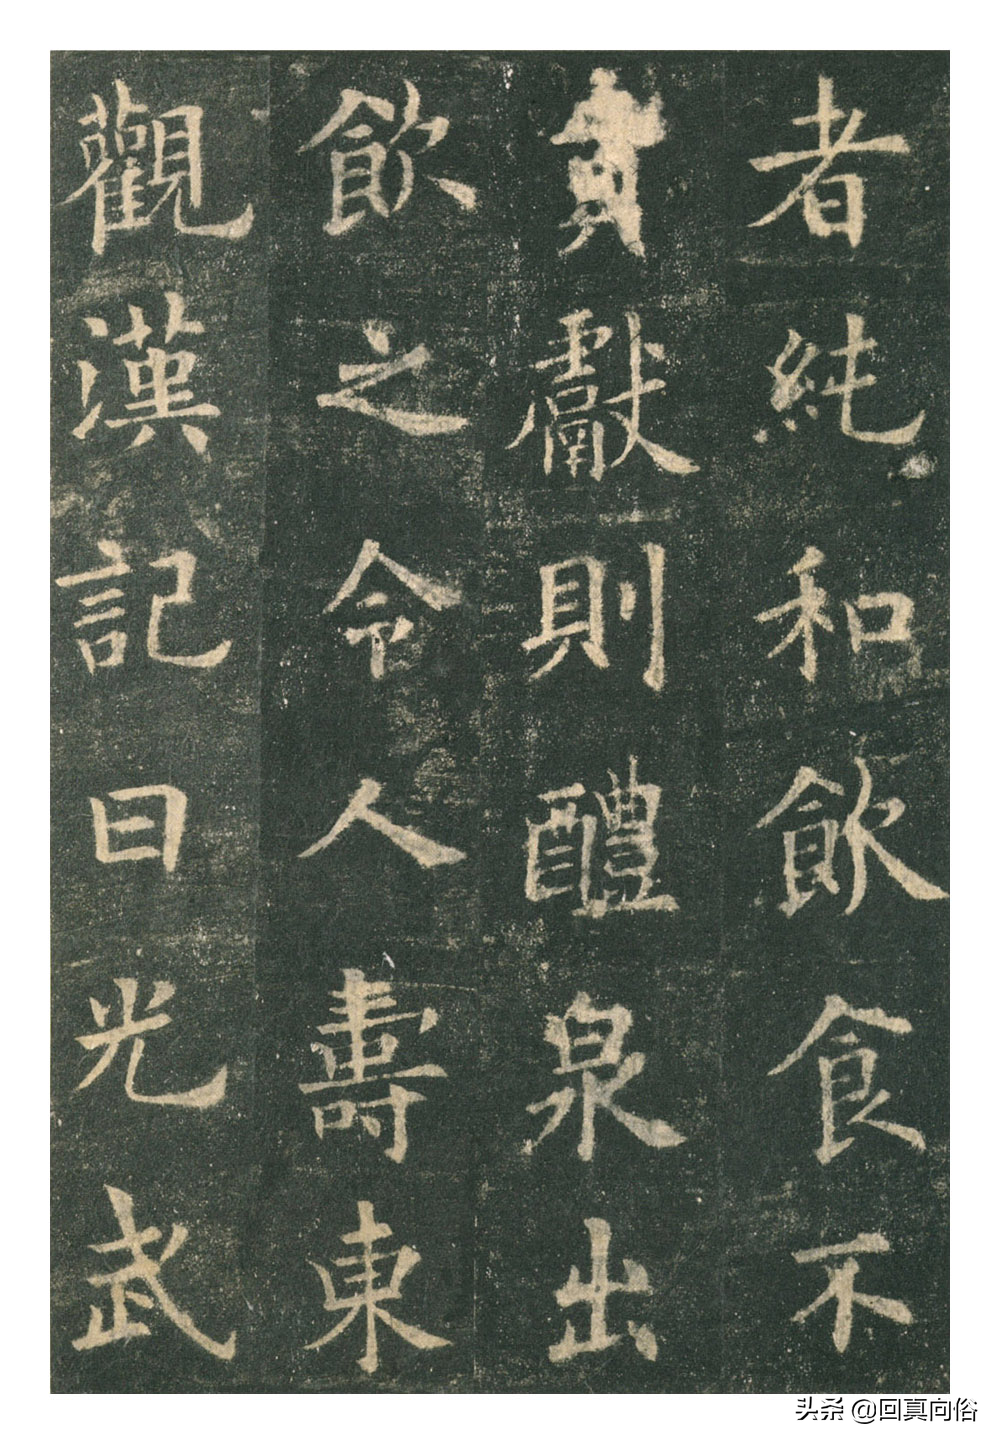 者純和飲食不
貢獻則醴泉出
飲之令人壽東
觀漢記曰光武
头条 @回真向俗